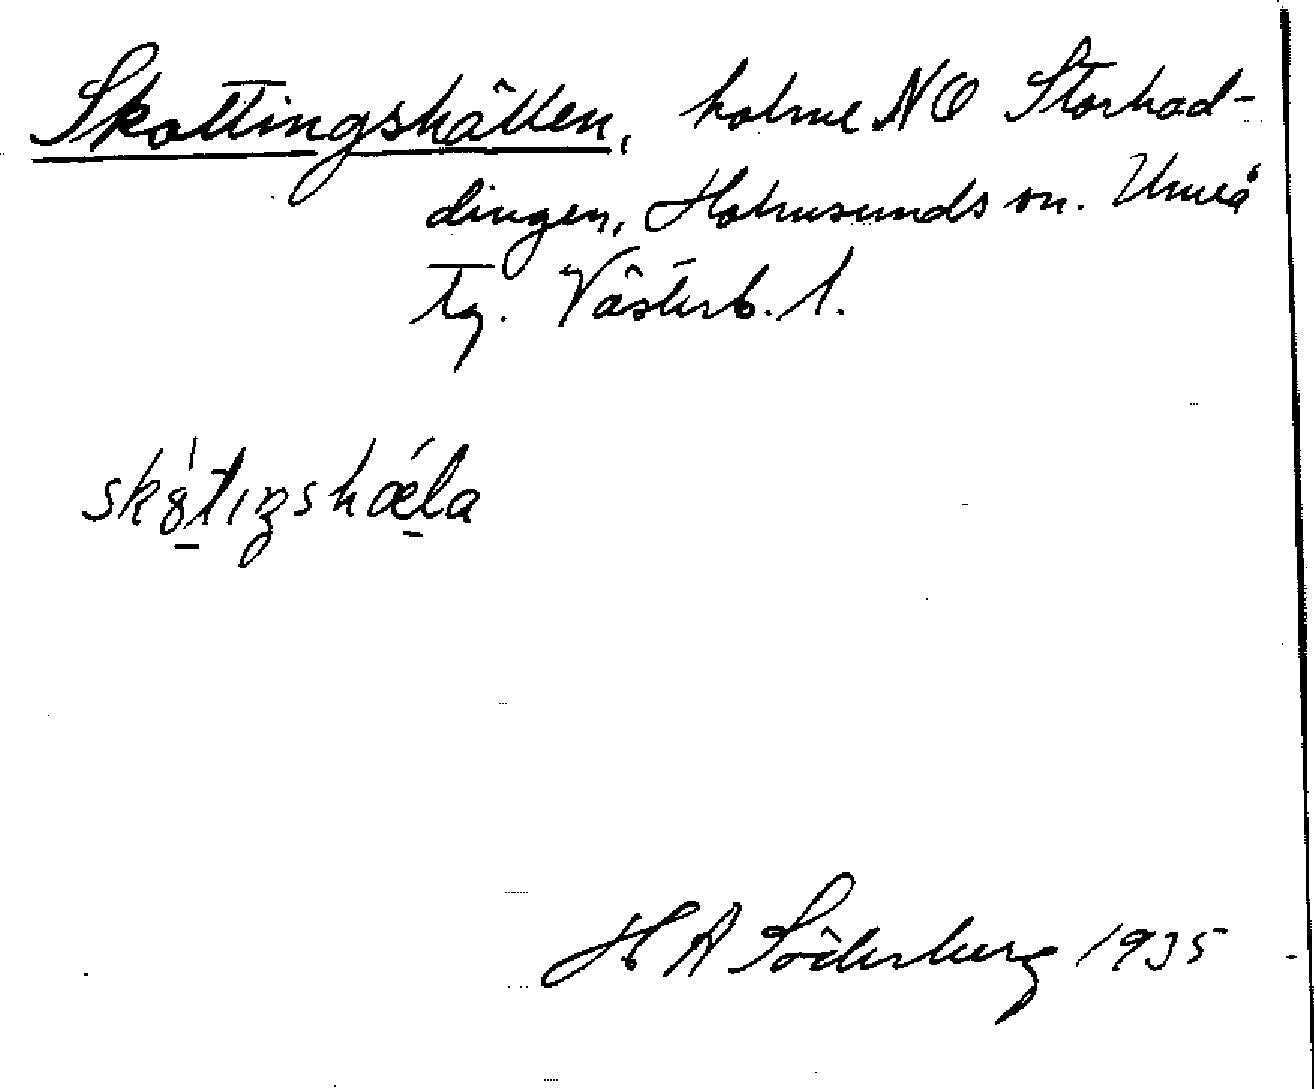 Skottingshällen, holme NO Storhad-
dingen, Holmsunds sn. Umeå
tg. Västerb. l.
skȯ́tıŋshǽla
H A Söderberg 1935